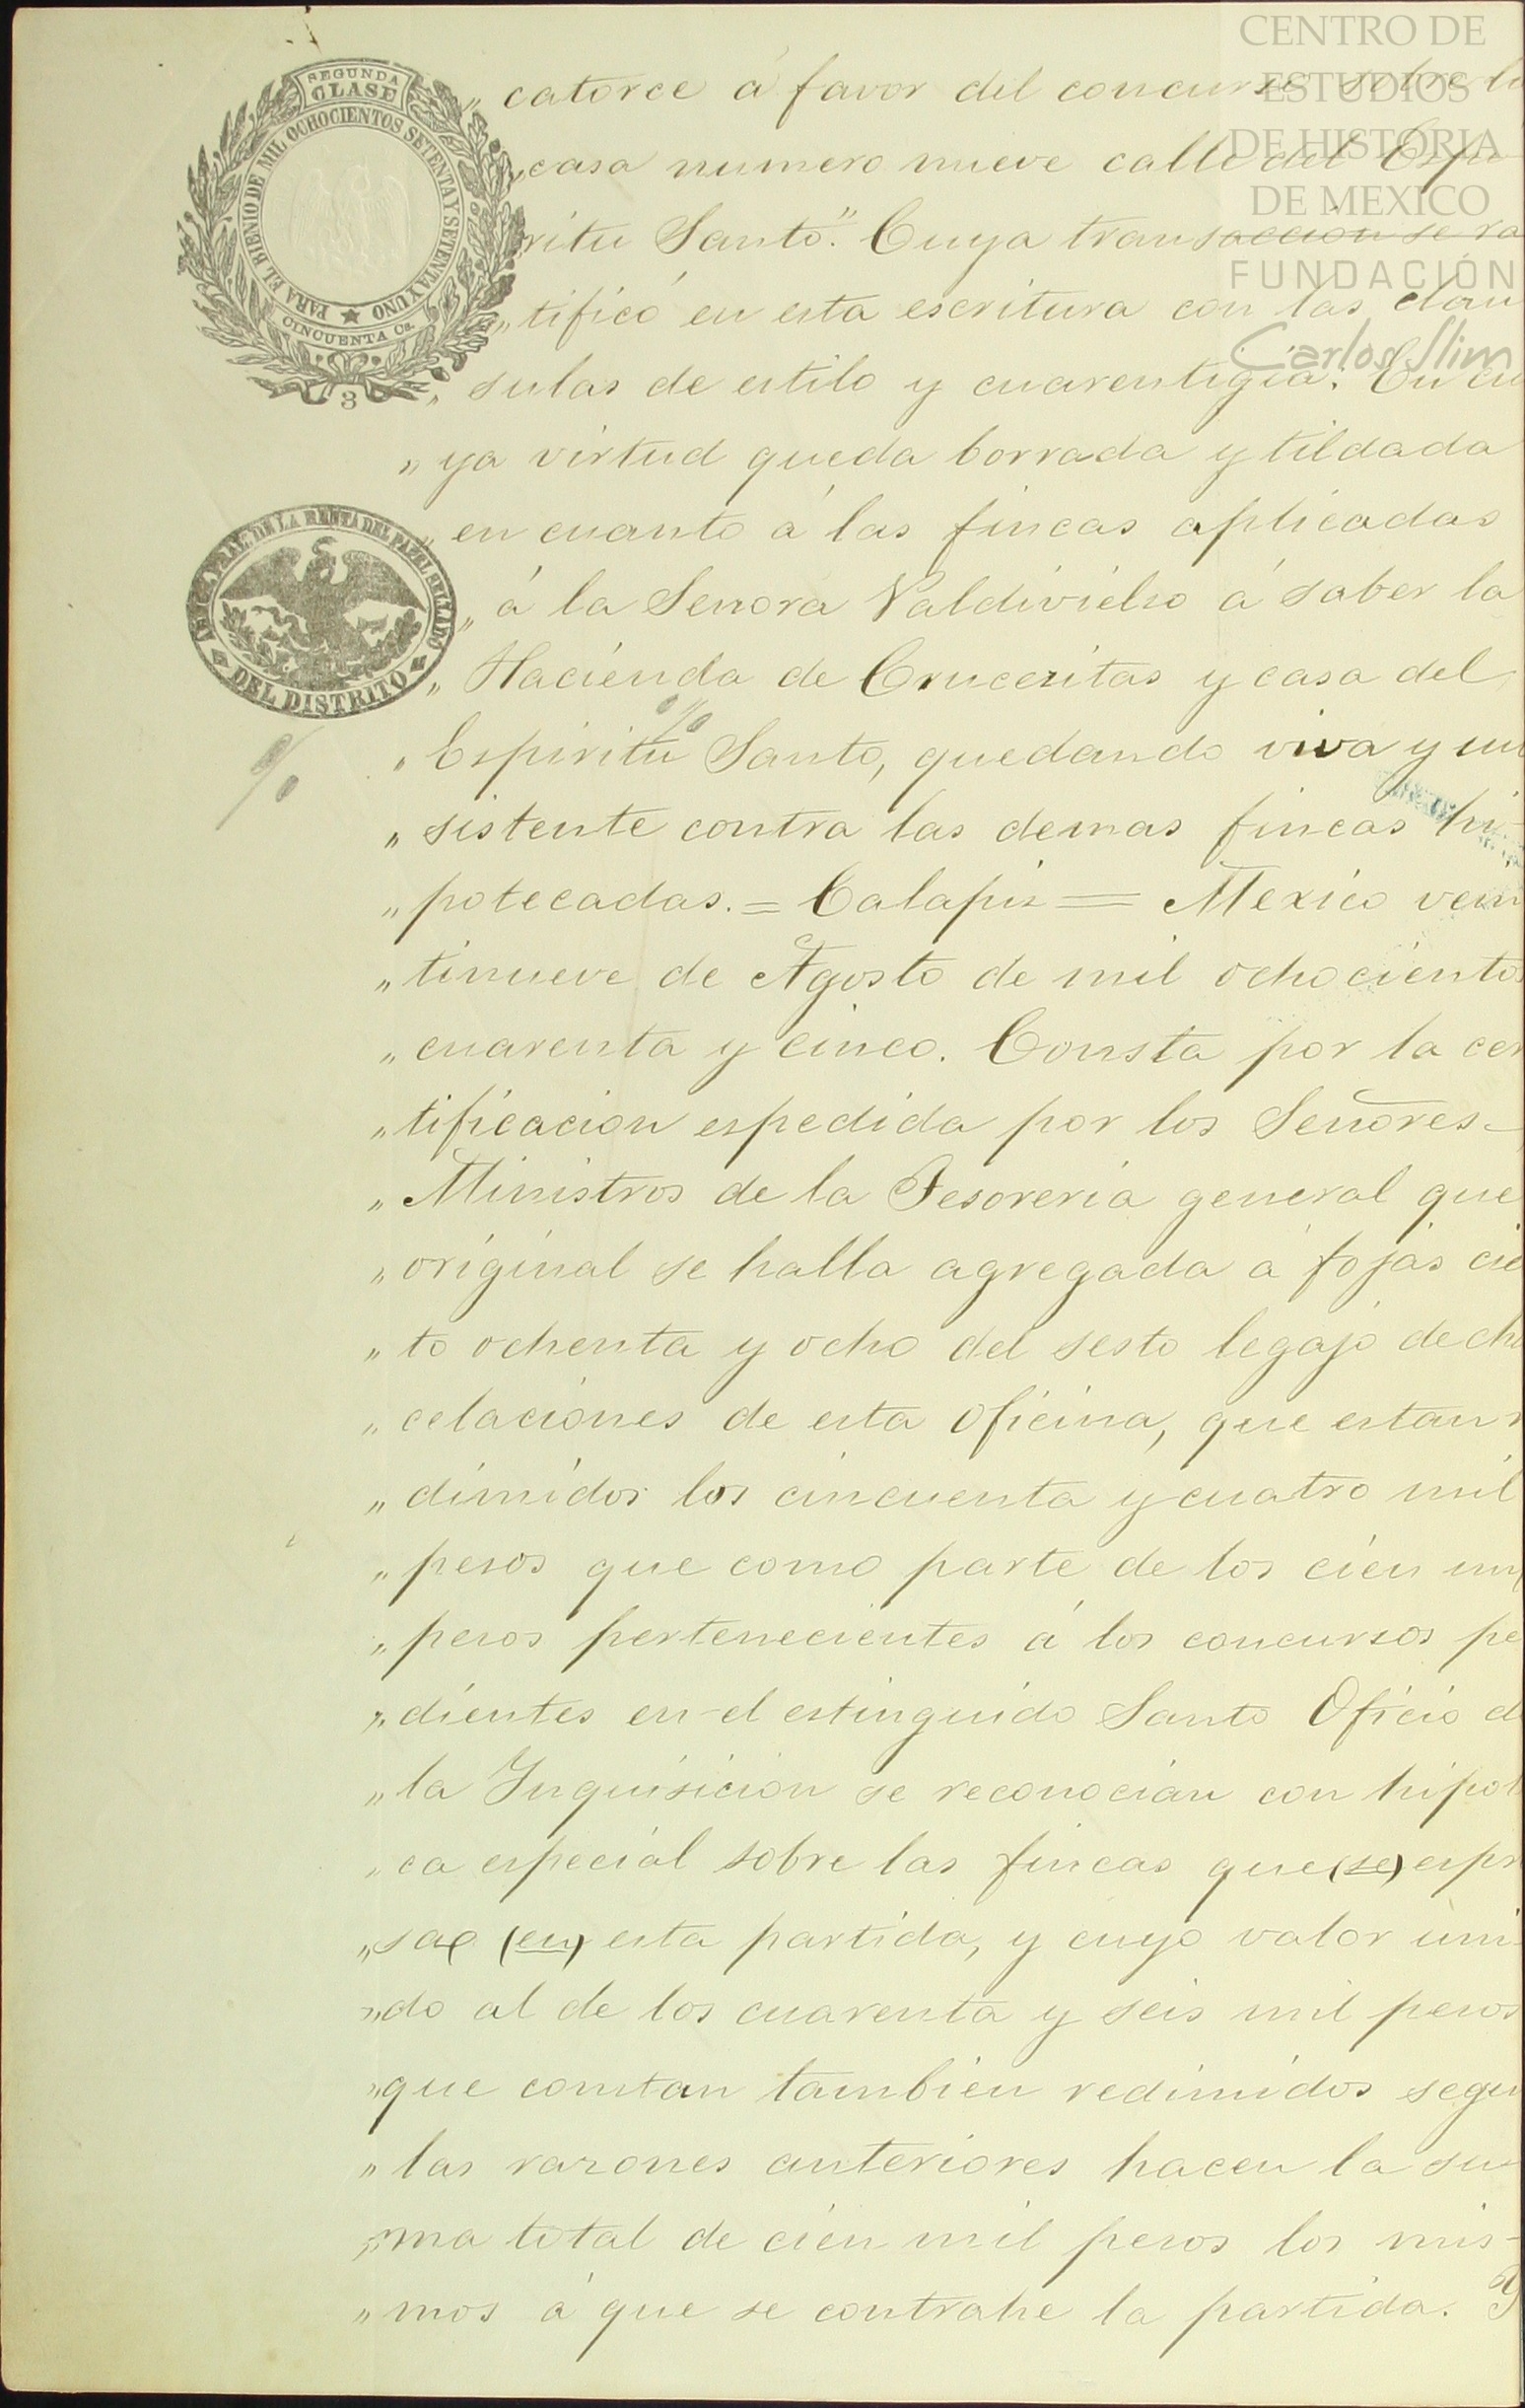 CENTRO DE
ESTUDIOS
DE HISTORIA
DE MEXICO
FUNDACIÓN
Carlos Slim
SEGUNDA
CLASE
PARA EL BIENIO DE MIL OCHOCIENTOS SETENTA Y SETENTA Y UNO
CINCUENTA Cs.
3
DE LA RENTA DEL PAPEL SELLADO
DEL DISTRITO
„ catorce á favor del concurso sobre la
„ casa numero nueve calle del Espi
ritu Santo." Cuya transaccion se ra
„ tificó en esta escritura con las clau
„ sulas de estilo y cuarentigia. En cu
„ ya virtud queda borrada y tildada
„ en cuanto á las fincas aplicadas
„ á la Senora Valdivielso á saber la
„ Hacienda de Cruceritas y casa del
„ Espiritu Santo, quedando viva y sub
„ sistente contra las demas fincas hi-
„ potecadas. = Calapiz = Mexico vein
„ tinueve de Agosto de mil ochocientos
„ cuarenta y cinco. Consta por la cer
„ tificacion espedida por los Señores
„ Ministros de la Tesoreria general que
„ original se halla agregada á fojas cie
„ to ochenta y ocho del sesto legajo de cha
„ celaciones de esta Oficina, que estan r
„ dimidos los cincuenta y cuatro mil
„ pesos que como parte de los cien mil
„ pesos pertenecientes á los concursos pe
„ dientes en el estinguido Santo Oficio d
„ la Inquisicion se reconocian con hipot
„ ca especial sobre las fincas que (se) espr
„ sa (en) esta partida, y cuyo valor uni
„ do al de los cuarenta y seis mil pesos
„ que constan tambien redimidos segun
„ las razones anteriores hacen la su
„ ma total de cien mil pesos los mis-
„ mos á que se contrahe la partida. Y